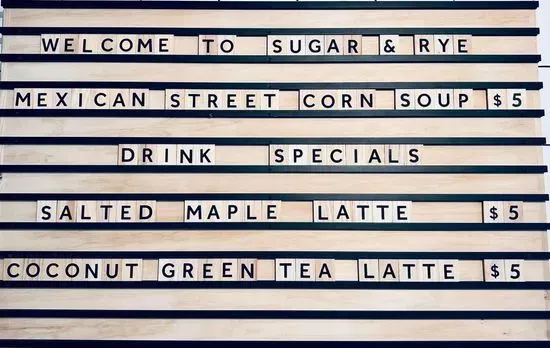 WELCOME TO SUGAR & RYE
MEXICAN STREET CORN SOUP $5
DRINK SPECIALS
SALTED MAPLE LATTE $5
COCONUT GREEN TEA LATTE $5